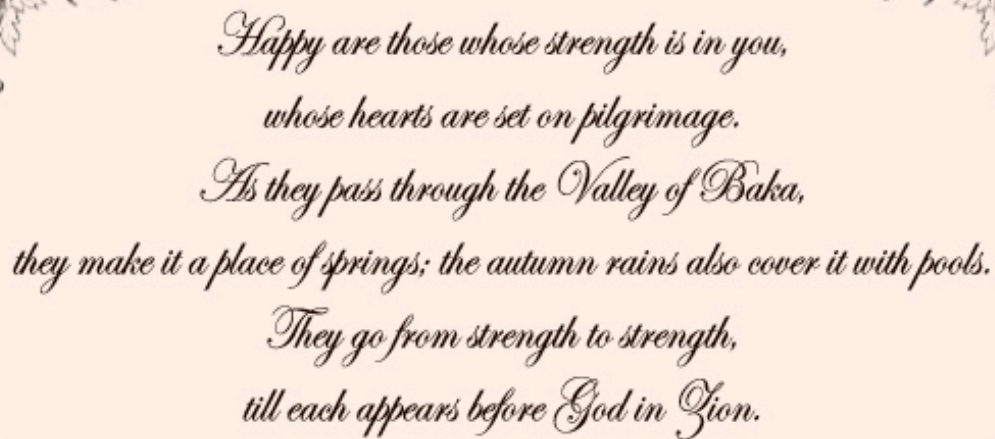 Happy are those whose strength is in you,
whose hearts are set on pilgrimage.
As they pass through the Valley of Baka,
they make it a place of springs; the autumn rains also cover it with pools.
They go from strength to strength,
till each appears before God in Zion.